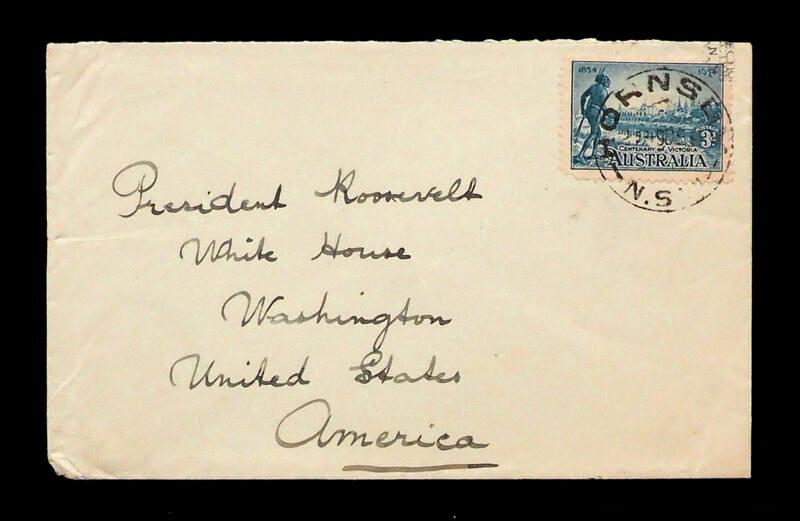 1834 1934
HORNSB
3D
CENTENARY OF VICTORIA
AUSTRALIA
N.S.
President Roosevelt
White House
Washington
United States
America